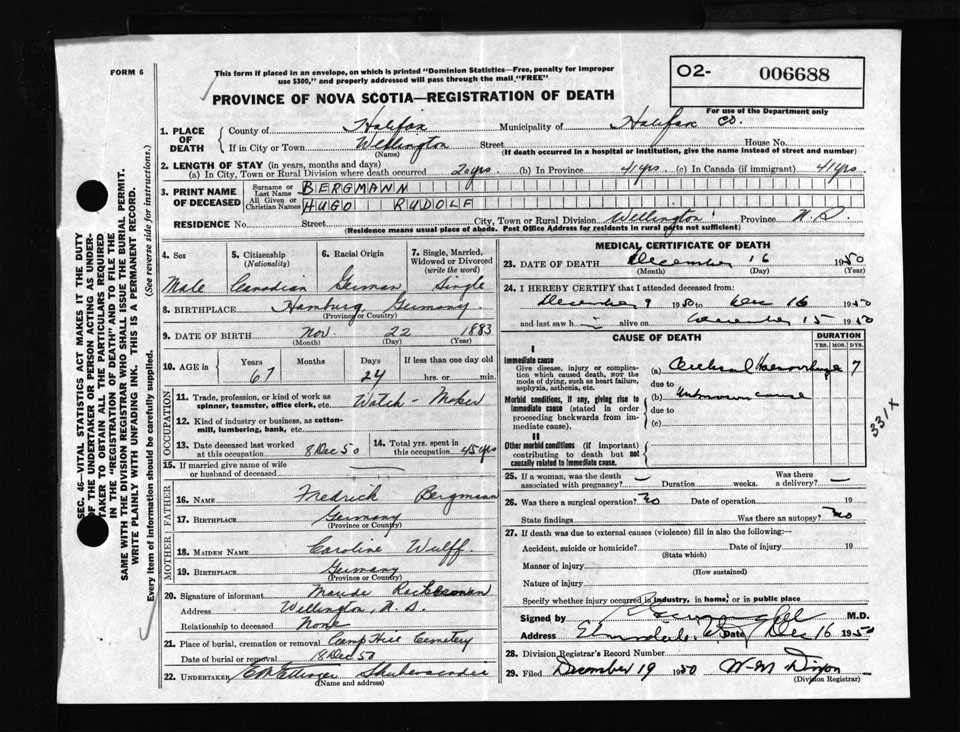 FORM 6
This form if placed in an envelope, on which is printed "Dominion Statistics—Free, penalty for improper
use $300," and properly addressed will pass through the mail "FREE"
O2- 006688
For use of the Department only
PROVINCE OF NOVA SCOTIA—REGISTRATION OF DEATH
1. PLACE OF DEATH
County of Halifax Municipality of Halifax Co.
If in City or Town Wellington Street House No.
(Name) (If death occurred in a hospital or institution, give the name instead of street and number)
2. LENGTH OF STAY (in years, months and days)
(a) In City, Town or Rural Division where death occurred 20 yrs. (b) In Province 41 yrs. (c) In Canada (if immigrant) 41 yrs.
3. PRINT NAME OF DECEASED
Surname or Last Name BERGMANN
All Given or Christian Names HUGO RUDOLF
RESIDENCE No. Street City, Town or Rural Division Wellington Province N.S.
(Residence means usual place of abode. Post Office Address for residents in rural parts not sufficient)
4. Sex Male
5. Citizenship (Nationality) Canadian
6. Racial Origin German
7. Single, Married, Widowed or Divorced (write the word) Single
8. BIRTHPLACE Hamburg Germany
(Province or Country)
9. DATE OF BIRTH Nov. 22 1883
(Month) (Day) (Year)
10. AGE in Years 67 Months Days 24 If less than one day old hrs. or min.
OCCUPATION
11. Trade, profession, or kind of work as spinner, teamster, office clerk, etc. Watch-Maker
12. Kind of industry or business, as cotton-mill, lumbering, bank, etc.
13. Date deceased last worked at this occupation 8 Dec 50
14. Total yrs. spent in this occupation 45 yrs
15. If married give name of wife or husband of deceased —
FATHER
16. NAME Fredrick Bergmann
17. BIRTHPLACE Germany
(Province or Country)
MOTHER
18. MAIDEN NAME Caroline Wulff.
19. BIRTHPLACE Germany
(Province or Country)
20. Signature of informant Maude
Address Wellington, N.S.
Relationship to deceased None
21. Place of burial, cremation or removal Camp Hill Cemetery
Date of burial or removal 18 Dec 50
22. UNDERTAKER Ettinger Shubenacadie
(Name and address)
MEDICAL CERTIFICATE OF DEATH
23. DATE OF DEATH December 16 1950
(Month) (Day) (Year)
24. I HEREBY CERTIFY that I attended deceased from:
December 9 1950 to Dec 16 1950
and last saw h im alive on December 15 1950
CAUSE OF DEATH
DURATION
YRS. MOS. DYS.
I
Immediate cause
Give disease, injury or complication which caused death, NOT the mode of dying, such as heart failure, asphyxia, asthenia, etc.
(a) Cerebral Haemorrhage 7
due to
Morbid conditions, if any, giving rise to immediate cause (stated in order proceeding backwards from immediate cause).
(b) Unknown cause
due to
(c)
II
Other morbid conditions (if important) contributing to death but not causally related to immediate cause.
331X
25. If a woman, was the death associated with pregnancy? — Duration weeks. Was there a delivery? —
26. Was there a surgical operation? No Date of operation 19
State findings Was there an autopsy? No
27. If death was due to external causes (violence) fill in also the following:
Accident, suicide or homicide? Date of injury 19
(State which)
Manner of injury
(How sustained)
Nature of injury
Specify whether injury occurred in industry, in home, or in public place
Signed by M.D.
Address Elmsdale N.S. Date Dec 16 1950
28. Division Registrar's Record Number
29. Filed December 19 1950 Dixon
(Division Registrar)
SEC. 46—VITAL STATISTICS ACT MAKES IT THE DUTY
OF THE UNDERTAKER OR PERSON ACTING AS UNDER-
TAKER TO OBTAIN ALL THE PARTICULARS REQUIRED
IN THE "REGISTRATION OF DEATH" AND TO FILE THE
SAME WITH THE DIVISION REGISTRAR WHO SHALL ISSUE THE BURIAL PERMIT.
WRITE PLAINLY WITH UNFADING INK. THIS IS A PERMANENT RECORD.
Every item of information should be carefully supplied. (See reverse side for instructions.)